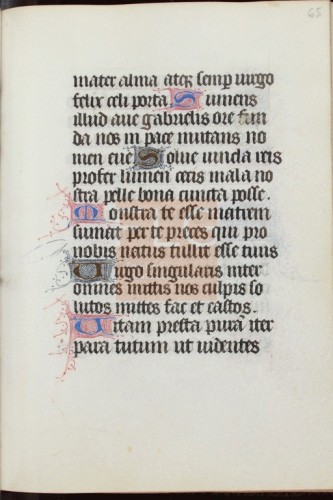 65
mater alma atq; semp virgo
felix celi porta. Sumens
illud aue gabrielis ore fun
da nos in pace mutans no
men eue. Solue vincla reis
profer lumen cecis mala no
stra pelle bona cuncta posse.
Monstra te esse matrem
sumat per te preces qui pro
nobis natus tullit esse tuus
Uirgo singularis inter
omnes mittis nos culpis so
lutos mittes fac et castos.
Uitam presta purā iter
para tutum ut videntes